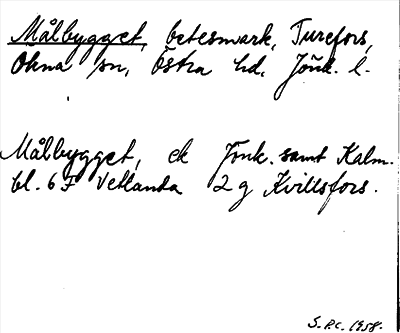 Målbygget, betesmark, Turefors,
Ökna sn, Östra hd, Jönk. l.
Målbygget, ek Jönk. samt Kalm.
bl. 6 F Vetlanda 2 g Kvillsfors.
S.P.C. 1958.